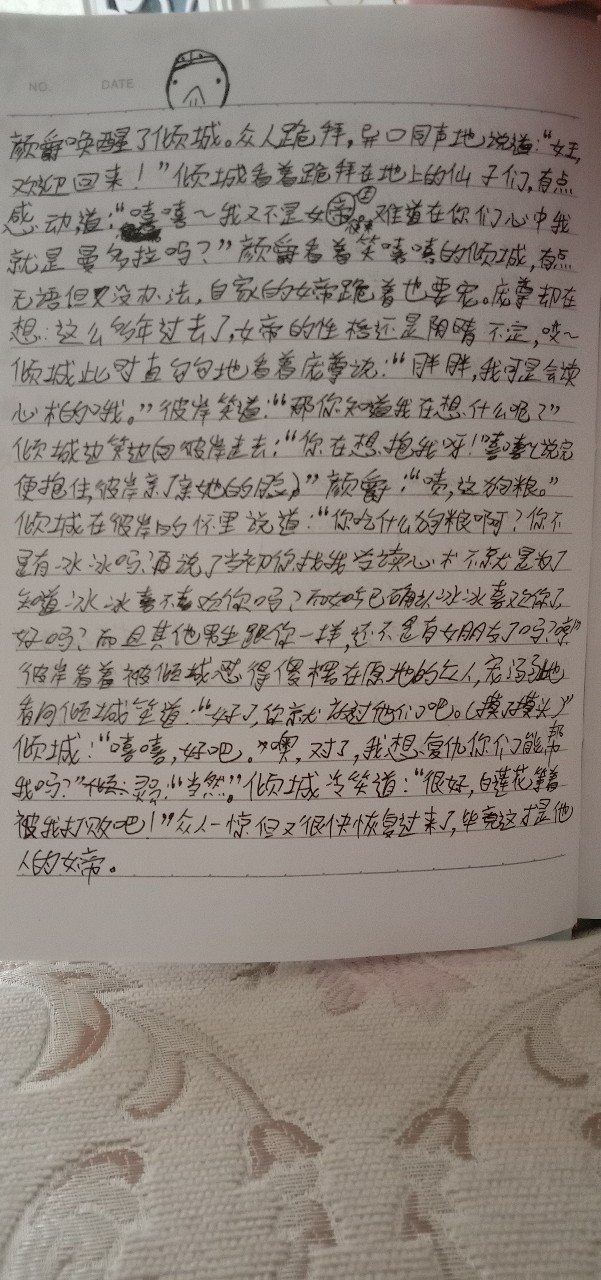 NO.
DATE
颜爵唤醒了倾城。众人跪拜，异口同声地说道：“女王，
欢迎回来！”倾城看着跪拜在地上的仙子们，有点
感动道：“嘻嘻～我又不是女帝，难道在你们心中我
就是曼多拉吗？”颜爵看着笑嘻嘻的倾城，有点
无语但又没办法，自家的女帝跪着也要宠。庞尊却在
想：这么多年过去了，女帝的性格还是阴晴不定，哎～
倾城此时直勾勾地看着庞尊说：“胖胖，我可是会读
心术的哦。”彼岸笑道：“那你知道我在想什么呢？”
倾城边笑边向彼岸走去：“你在想抱我呀！嘻嘻（说完
便抱住彼岸亲了亲她的脸）”颜爵：“啧，这狗粮。”
倾城在彼岸的怀里说道：“你吃什么狗粮啊？你不
是有冰冰吗？再说了当初你找我学读心术不就是为了
知道冰冰喜不喜欢你吗？而如今已确认冰冰喜欢你了
好吗？而且其他男生跟你一样，还不是有女朋友了吗？哼”
彼岸看着被倾城怼得傻楞在原地的众人，宠溺地
看向倾城笑道：“好了，你就放过他们吧。（摸了摸头）”
倾城：“嘻嘻，好吧。”噢，对了，我想复仇你们能帮
我吗？”众：“当然”。倾城冷笑道：“很好，白莲花等着
被我打败吧！”众人一惊但又很快恢复过来了，毕竟这才是他
人的女帝。